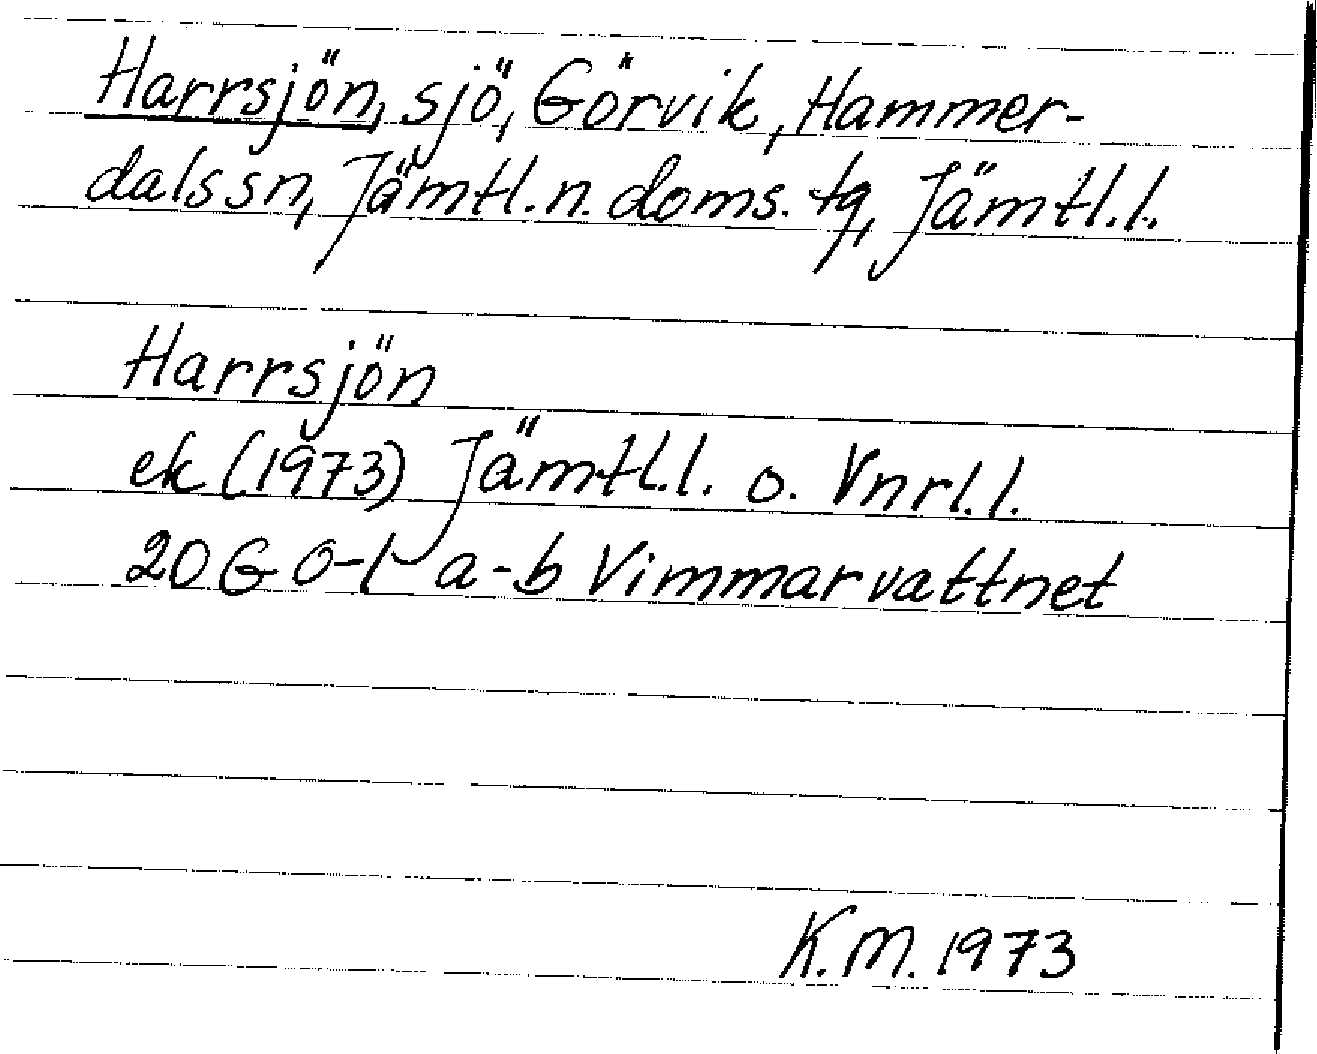 Harrsjön, sjö, Görvik, Hammer-
dalssn, Jämtl. n. doms. tg, Jämtl. l.
Harrsjön
ek (1973) Jämtl. l. o. Vnrl. l.
20G 0-1 a-b Vimmarvattnet
K.M. 1973